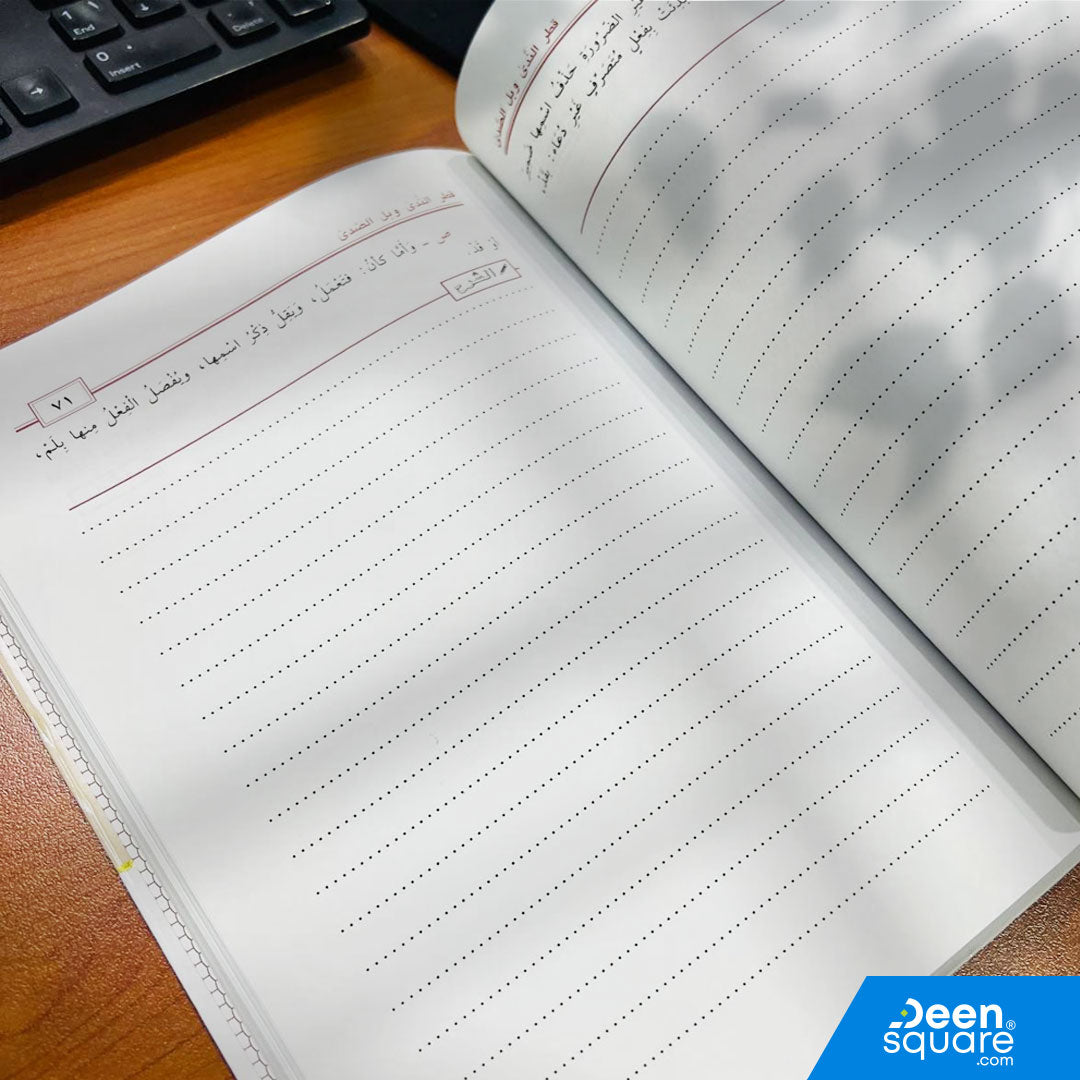 1
End
0
Insert
Delete
قطر النَّدَى وبل الصَّدَى
الضَّرُورَةِ حَذْفُ اسْمِها ضمير
بِفِعْلٍ مُتَصَرِّفٍ غَيْرِ دُعَاءٍ:
قطر النَّدَى وبل الصَّدَى
٧١
ص - وَأَمَّا كَأَنْ: فَتَعْمَلُ، وَيَقِلُّ ذِكْرُ اسْمِها، وَيُفْصَلُ الْفِعْلُ مِنها بِلَمْ،
أَوْ قَدْ.
الشَّرح
Deen
square®
.com